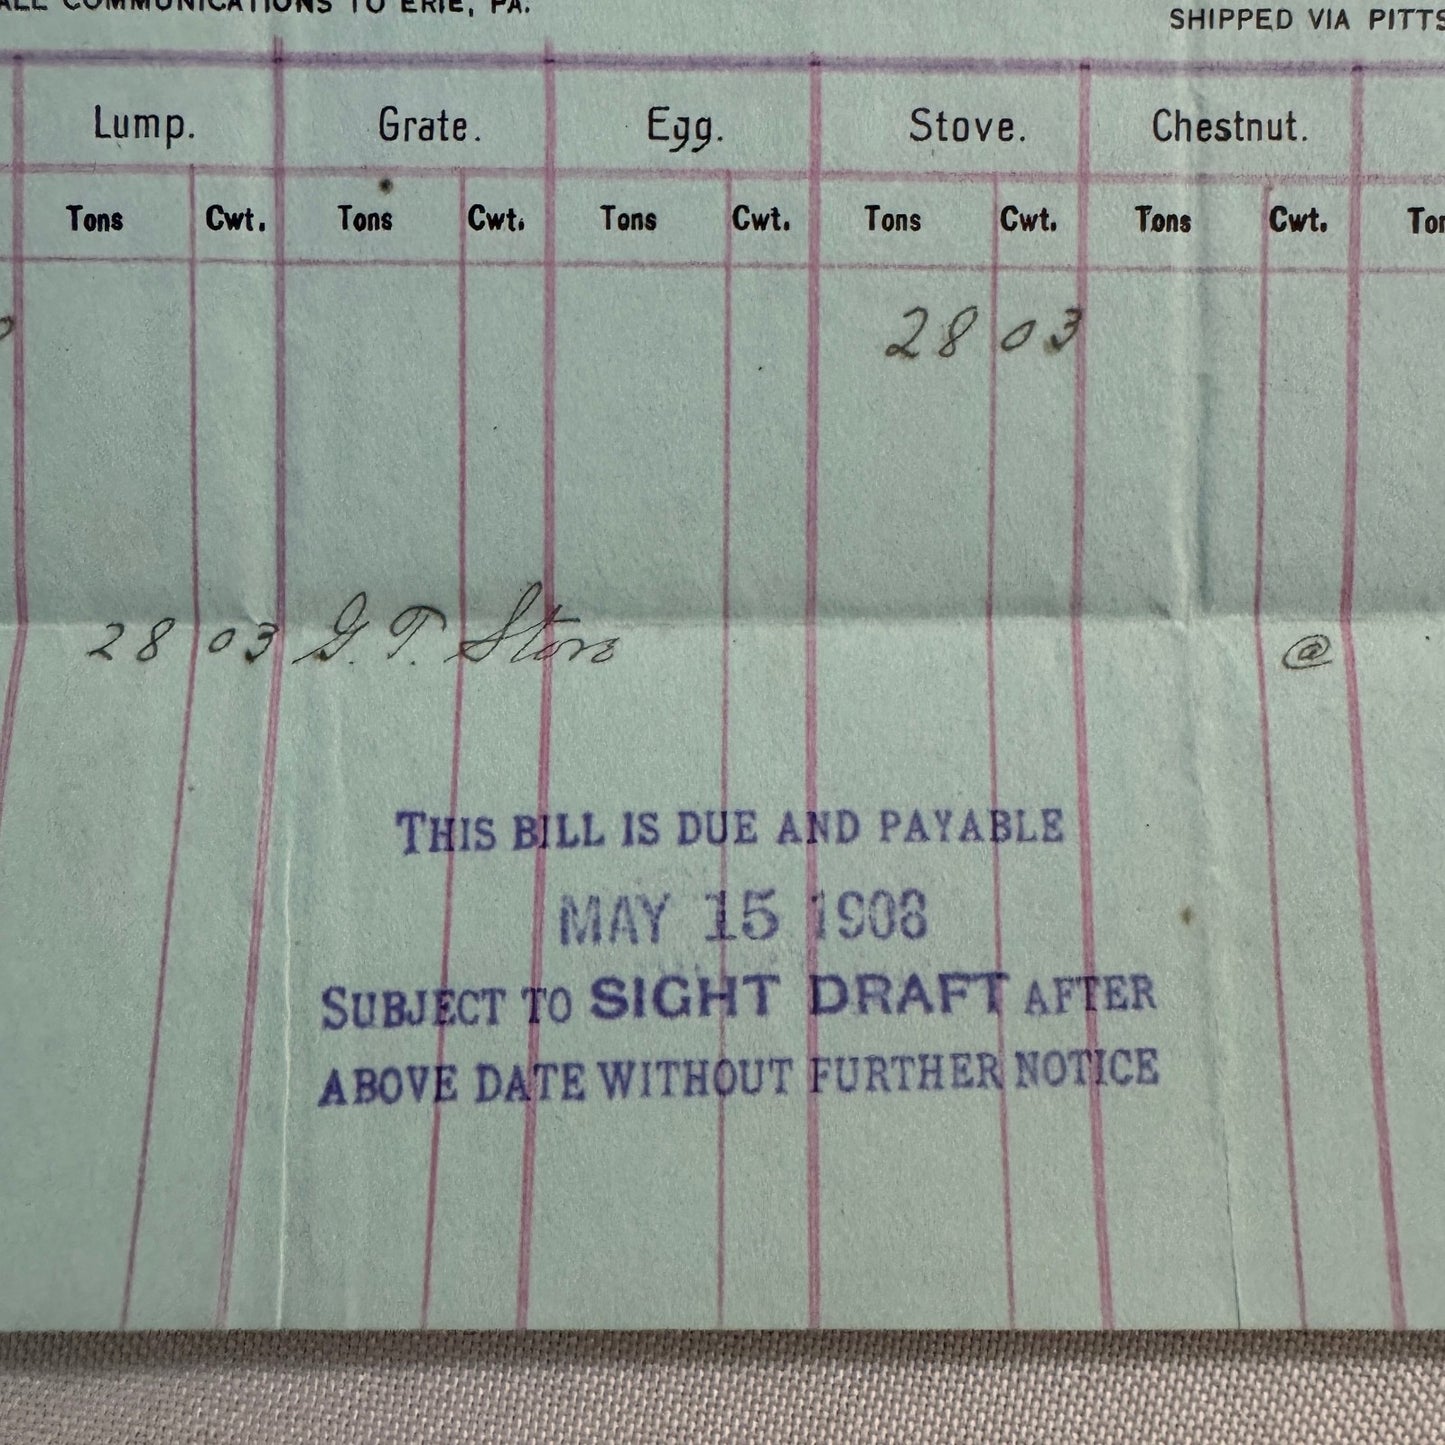 ALL COMMUNICATIONS TO ERIE, PA.
SHIPPED VIA PITTS
Lump. Grate. Egg. Stove. Chestnut.
Tons Cwt. Tons Cwt. Tons Cwt. Tons Cwt. Tons Cwt. Ton
28 03
28 03 G. T. Stove @
THIS BILL IS DUE AND PAYABLE
MAY 15 1908
SUBJECT TO SIGHT DRAFT AFTER
ABOVE DATE WITHOUT FURTHER NOTICE